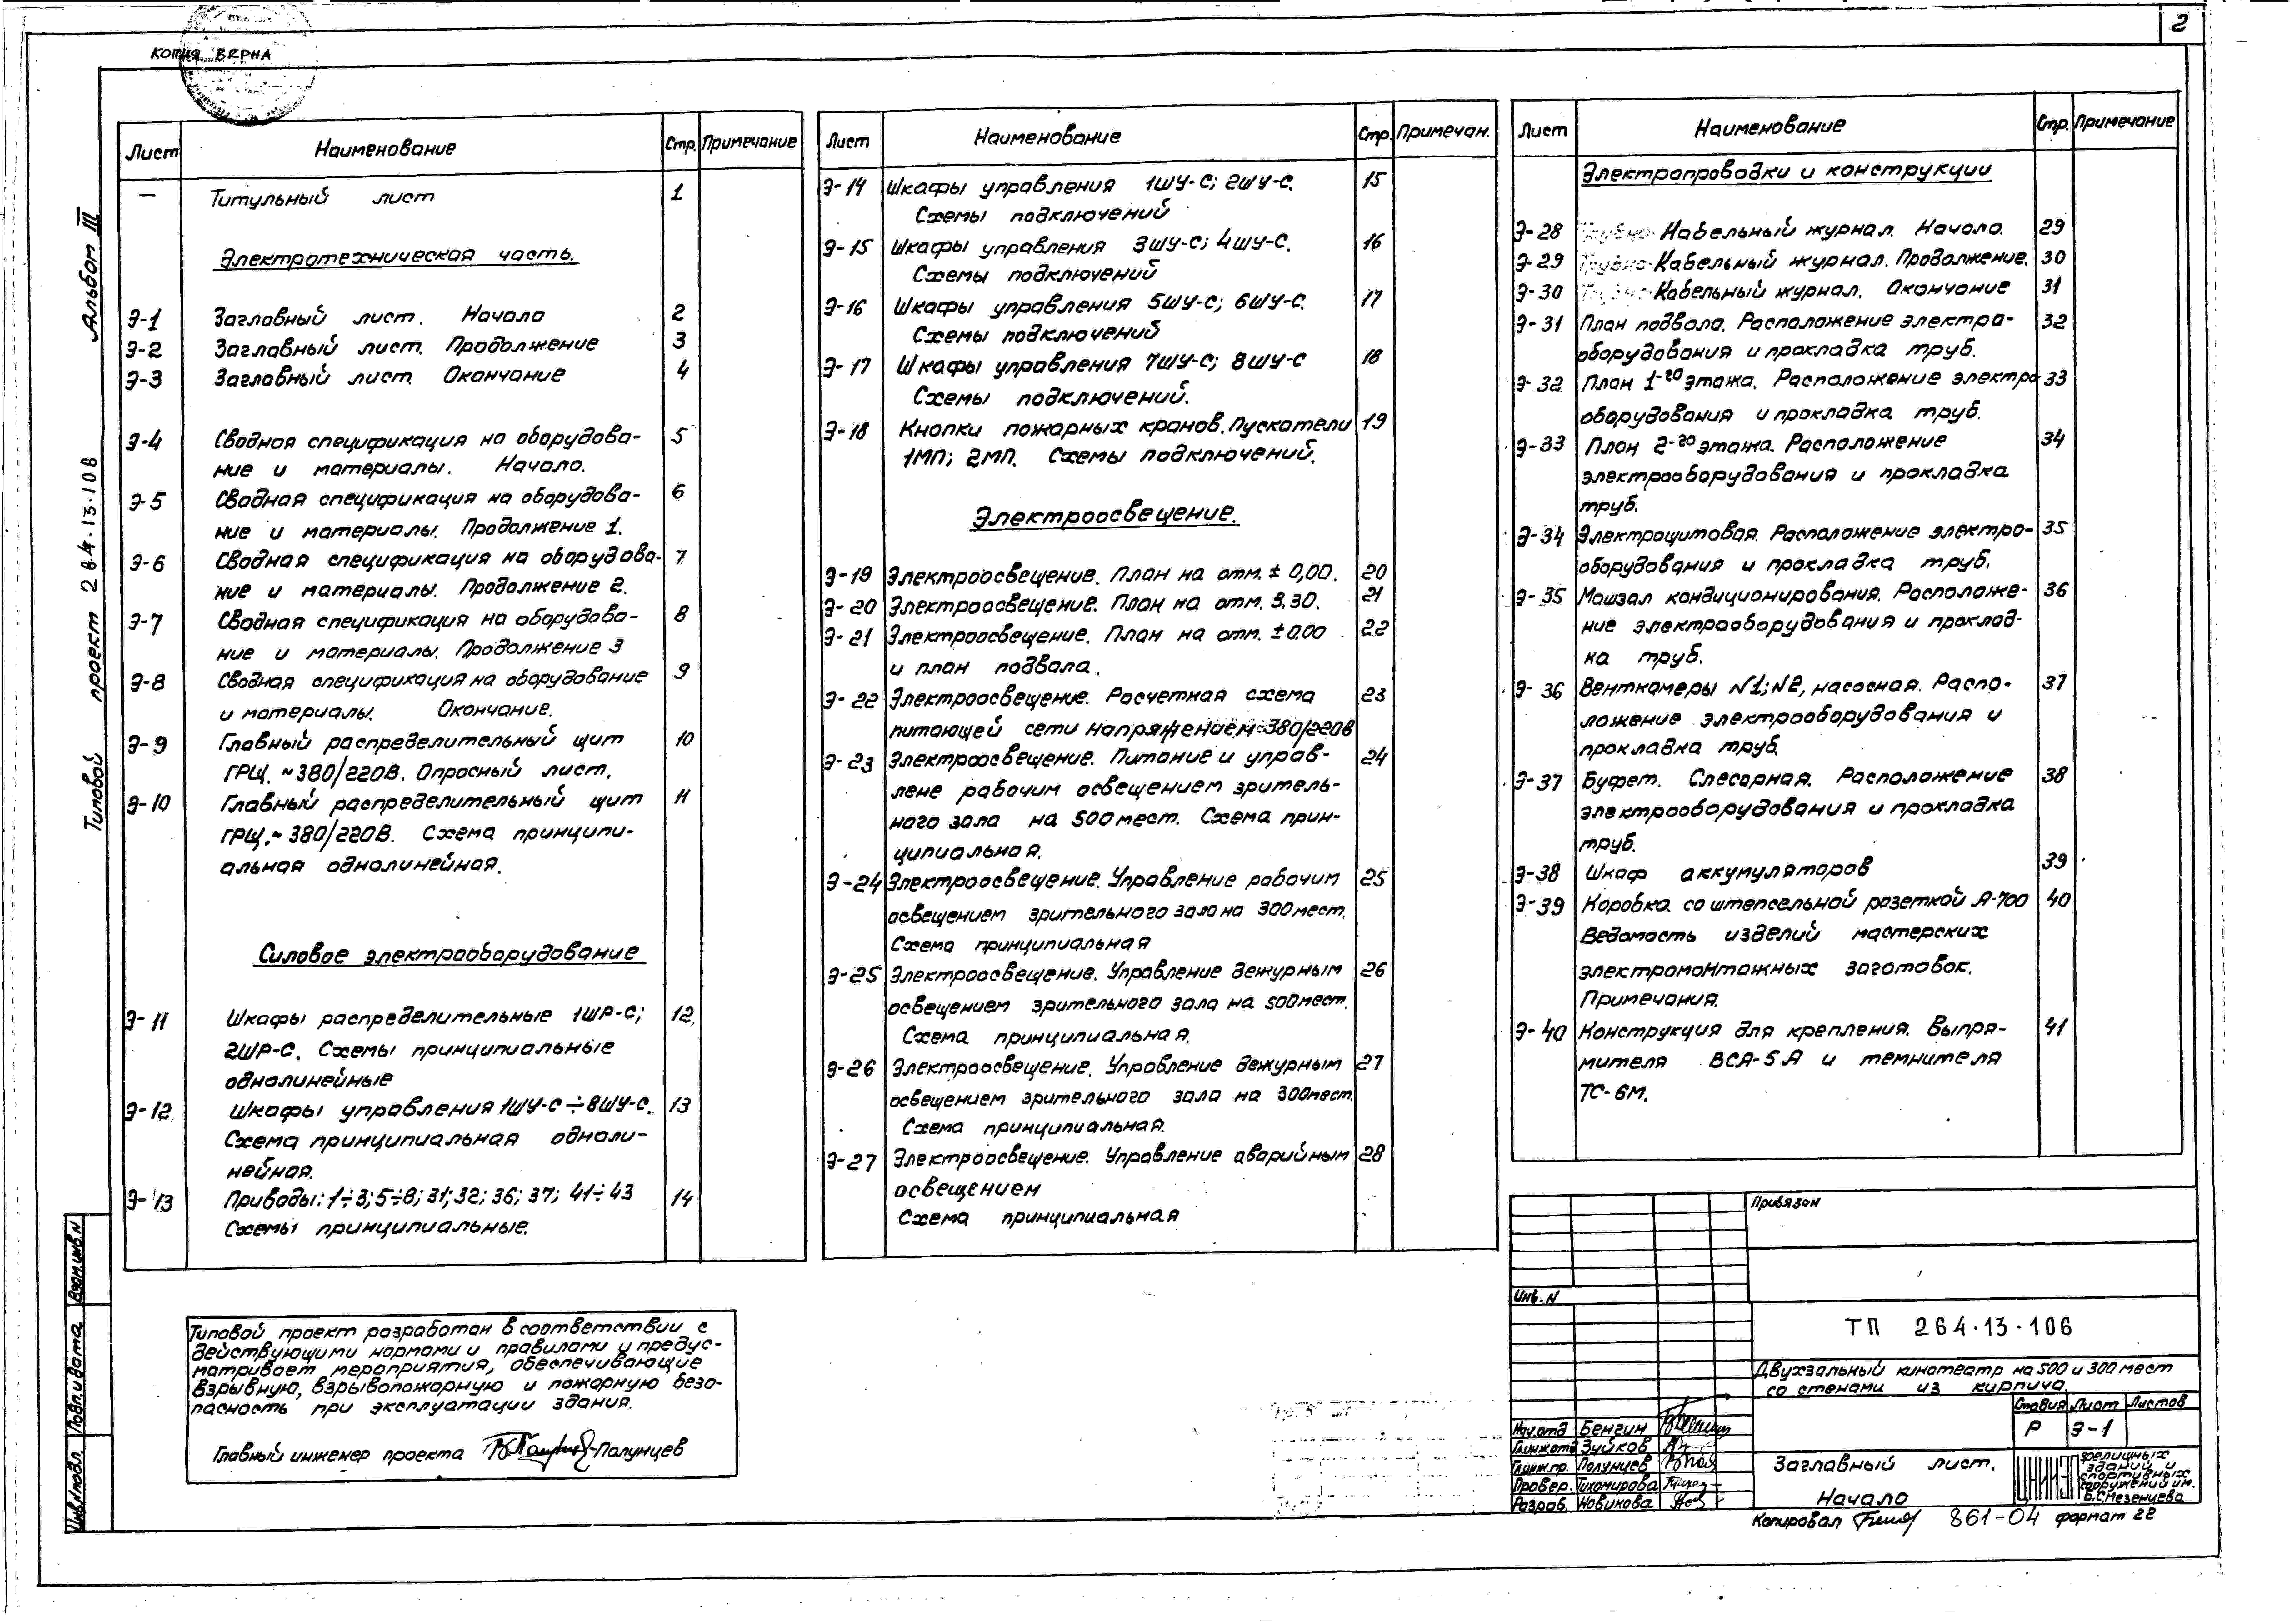 2
КОПИЯ ВЕРНА
Типовой проект 264.13.106 Альбом III
Лист Наименование Стр. Примечание
— Титульный лист 1
Электротехническая часть.
Э-1 Заглавный лист. Начало 2
Э-2 Заглавный лист. Продолжение 3
Э-3 Заглавный лист. Окончание 4
Э-4 Сводная спецификация на оборудова- 5
ние и материалы. Начало.
Э-5 Сводная спецификация на оборудова- 6
ние и материалы. Продолжение 1.
Э-6 Сводная спецификация на оборудова- 7
ние и материалы. Продолжение 2.
Э-7 Сводная спецификация на оборудова- 8
ние и материалы. Продолжение 3
Э-8 Сводная спецификация на оборудование 9
и материалы. Окончание.
Э-9 Главный распределительный щит 10
ГРЩ. ~380/220В. Опросный лист.
Э-10 Главный распределительный щит 11
ГРЩ.~380/220В. Схема принципи-
альная однолинейная.
Силовое электрооборудование
Э-11 Шкафы распределительные 1ШР-С; 12
2ШР-С. Схемы принципиальные
однолинейные
Э-12 Шкафы управления 1ШУ-С÷8ШУ-С. 13
Схема принципиальная одноли-
нейная.
Э-13 Приводы: 1÷3; 5÷8; 31; 32; 36; 37; 41÷43 14
Схемы принципиальные.
Лист Наименование Стр. Примечан.
Э-14 Шкафы управления 1ШУ-С; 2ШУ-С. 15
Схемы подключений
Э-15 Шкафы управления 3ШУ-С; 4ШУ-С. 16
Схемы подключений
Э-16 Шкафы управления 5ШУ-С; 6ШУ-С. 17
Схемы подключений
Э-17 Шкафы управления 7ШУ-С; 8ШУ-С 18
Схемы подключений.
Э-18 Кнопки пожарных кранов. Пускатели 19
1МП; 2МП. Схемы подключений.
Электроосвещение.
Э-19 Электроосвещение. План на отм. ± 0,00. 20
Э-20 Электроосвещение. План на отм. 3.30. 21
Э-21 Электроосвещение. План на отм. ±0.00 22
и план подвала.
Э-22 Электроосвещение. Расчетная схема 23
питающей сети напряжением ~380/220В
Э-23 Электроосвещение. Питание и управ- 24
лене рабочим освещением зритель-
ного зала на 500 мест. Схема прин-
ципиальная.
Э-24 Электроосвещение. Управление рабочим 25
освещением зрительного зала на 300 мест.
Схема принципиальная
Э-25 Электроосвещение. Управление дежурным 26
освещением зрительного зала на 500 мест.
Схема принципиальная.
Э-26 Электроосвещение. Управление дежурным 27
освещением зрительного зала на 300 мест.
Схема принципиальная.
Э-27 Электроосвещение. Управление аварийным 28
освещением
Схема принципиальная
Лист Наименование Стр. Примечание
Электропроводки и конструкции
Э-28 Кабельный журнал. Начало. 29
Э-29 Кабельный журнал. Продолжение. 30
Э-30 Кабельный журнал. Окончание 31
Э-31 План подвала. Расположение электро- 32
оборудования и прокладка труб.
Э-32 План 1-го этажа. Расположение электро 33
оборудования и прокладка труб.
Э-33 План 2-го этажа. Расположение 34
электрооборудования и прокладка
труб.
Э-34 Электрощитовая. Расположение электро- 35
оборудования и прокладка труб.
Э-35 Машзал кондиционирования. Расположе- 36
ние электрооборудования и проклад-
ка труб.
Э-36 Венткамеры N1; N2, насосная. Распо- 37
ложение электрооборудования и
прокладка труб.
Э-37 Буфет. Слесарная. Расположение 38
электрооборудования и прокладка
труб.
Э-38 Шкаф аккумуляторов 39
Э-39 Коробка со штепсельной розеткой А-700 40
Ведомость изделий мастерских
электромонтажных заготовок.
Примечания.
Э-40 Конструкция для крепления. Выпря- 41
мителя ВСА-5А и темнителя
ТС-6М.
Типовой проект разработан в соответствии с
действующими нормами и правилами и предус-
матривает мероприятия, обеспечивающие
взрывную, взрывопожарную и пожарную безо-
пасность при эксплуатации здания.
Главный инженер проекта Полунцев
Взам.инв.N
Подп. и дата
Инв.N подл.
Привязан
Инв. N
ТП 264.13.106
Двухзальный кинотеатр на 500 и 300 мест
со стенами из кирпича.
Стадия Лист Листов
Р Э-1
Нач.отд Бенгин
Гл.инж.отд Зуйков
Гл.инж.пр. Полунцев
Провер. Тихомирова
Разраб. Новикова
Заглавный лист.
Начало
ЦНИИЭП
зрелищных
зданий и
спортивных
сооружений им.
Б.С.Мезенцева
Копировал 861-04 формат 22